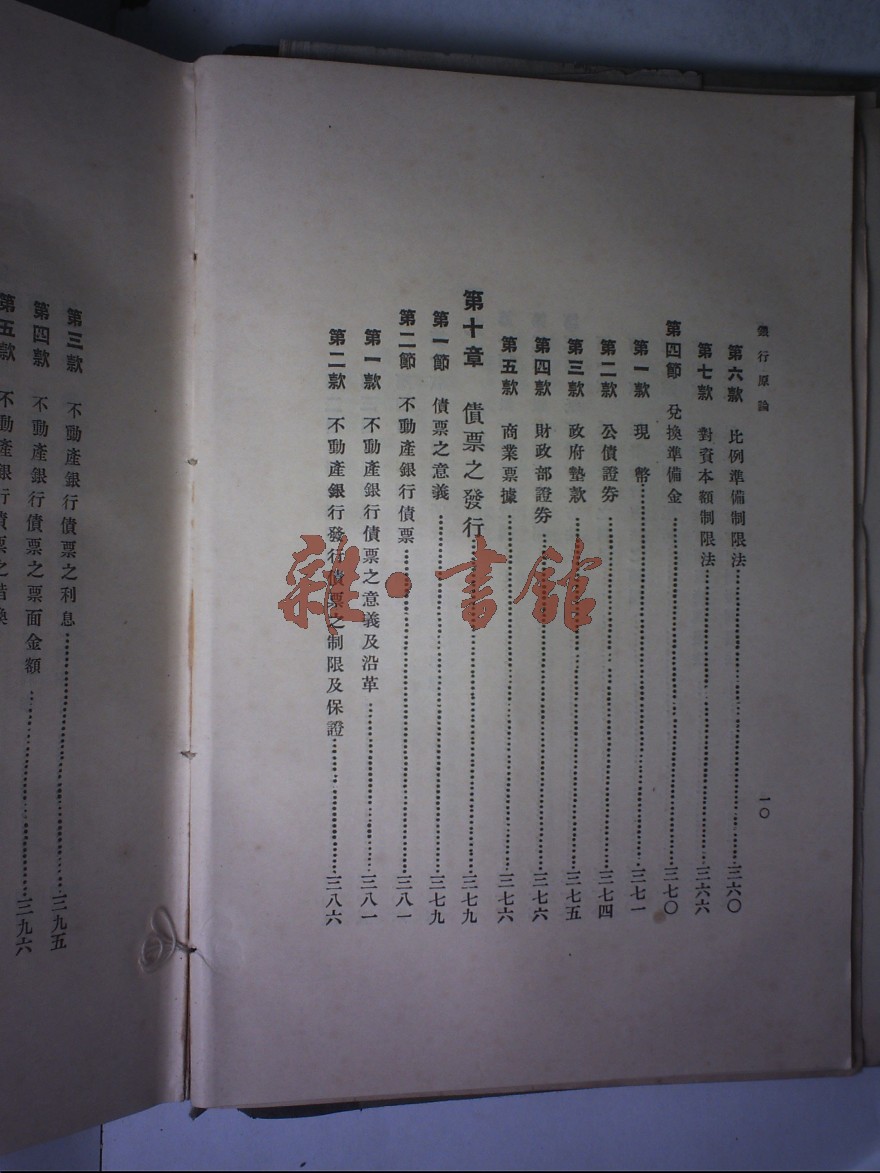 銀行原論
第六款 比例準備制限法……三六〇
第七款 對資本額制限法……三六六
第四節 兌換準備金……三七〇
第一款 現幣……三七一
第二款 公債證券……三七四
第三款 政府墊款……三七五
第四款 財政部證券……三七六
第五款 商業票據……三七六
第十章 債票之發行……三七九
第一節 債票之意義……三七九
第二節 不動產銀行債票……三八一
第一款 不動產銀行債票之意義及沿革……三八一
第二款 不動產銀行發行債票之制限及保證……三八六
一〇
第三款 不動產銀行債票之利息……三九五
第四款 不動產銀行債票之票面金額……三九六
第五款 不動產銀行債票之
雜·書館